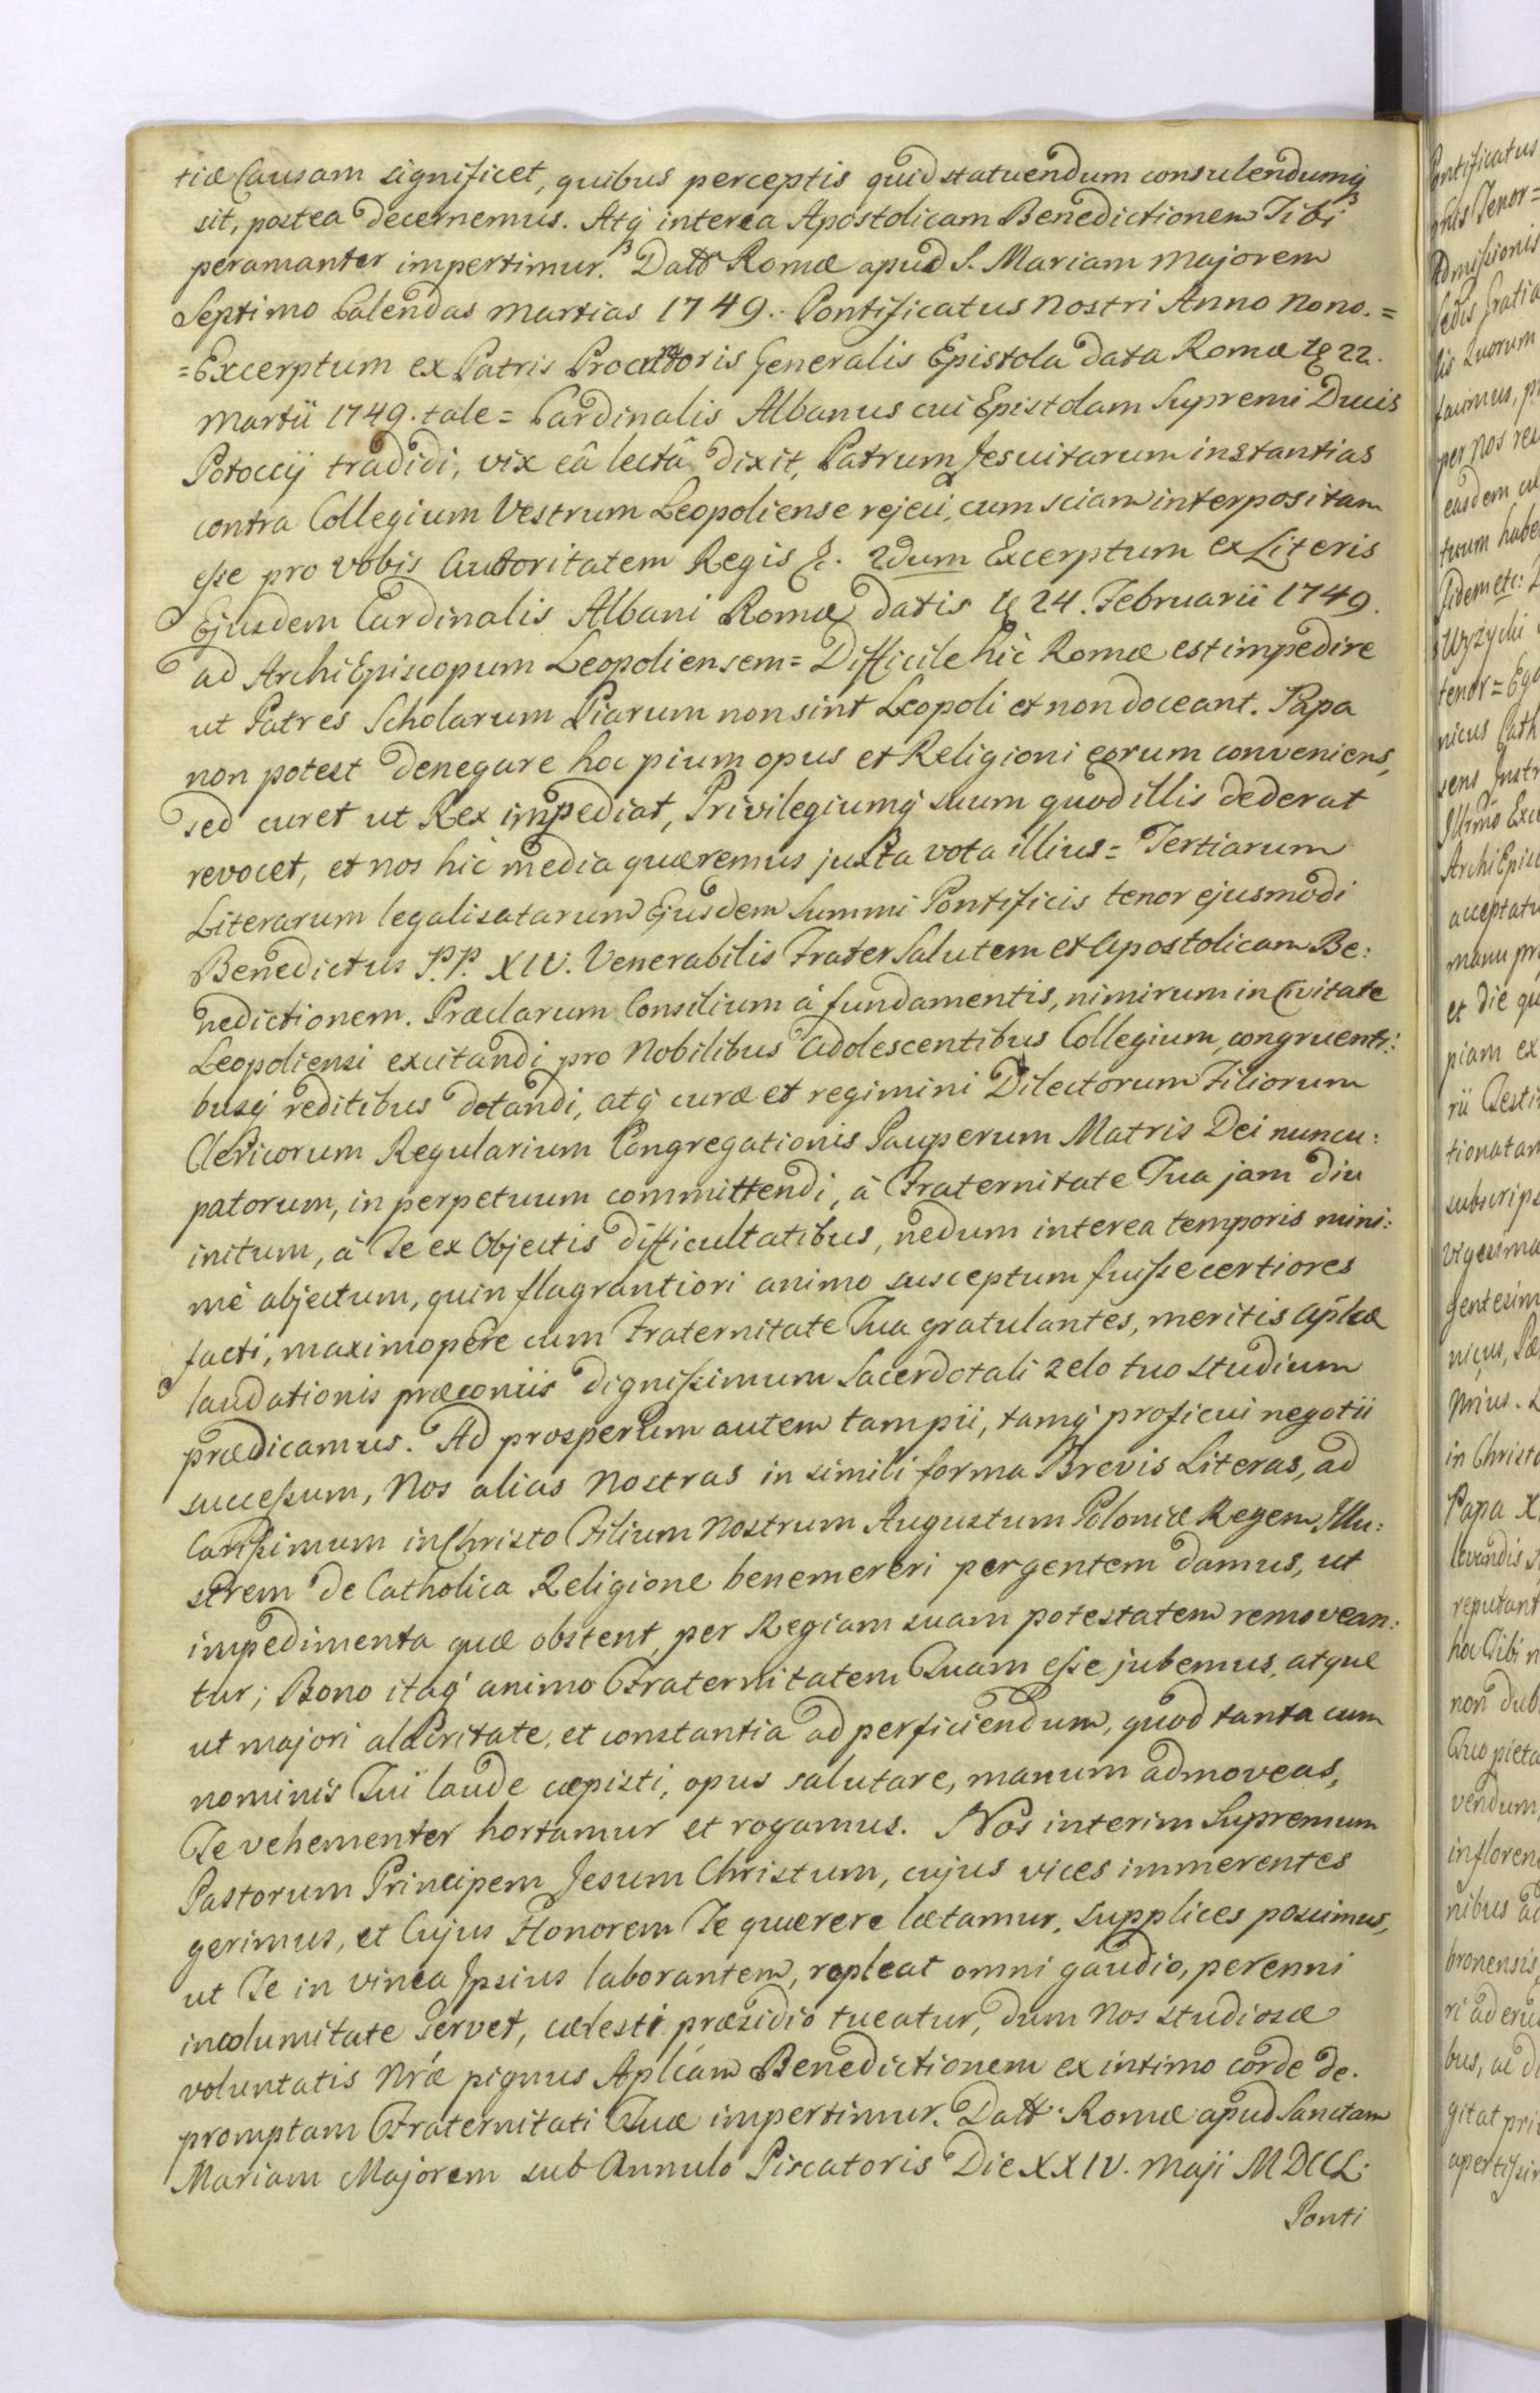 tiæ Causam significet, quibus perceptis quid statuendum consulendumq́
sit, postea decernemus. Atq́ interea Apostolicam Benedictionem Tibi
peramanter impertimur. Datt Romæ apud S. Mariam majorem
Septimo Calendas Martias 1749. Pontificatus Nostri Anno Nono. =
= Excerptum ex Patris Procuratoris Generalis Epistola data Romæ 22.
Martii 1749. tale = Cardinalis Albanus cui Epistolam Supremi Ducis
Potoccij tradidi, vix eâ lectâ dixit, Patrum Jesuitarum instantias
contra Collegium Vestrum Leopoliense rejeci, cum sciam interpositam
esse pro vobis Autoritatem Regis &. 2dum Excerptum ex Literis
Ejusdem Cardinalis Albani Romæ datis 24. Februarii 1749.
ad ArchiEpiscopum Leopoliensem = Difficile hic Romæ est impedire
ut Patres Scholarum Piarum non sint Leopoli et non doceant. Papa
non potest denegare hoc pium opus et Religioni eorum conveniens,
sed curet ut Rex impediat, Privilegiumq́ suum quod illis dederat
revocet, et nos hic media quæremus juxta vota illius = Tertiarum
Literarum legalisatarum Ejusdem Summi Pontificis tenor ejusmodi
Benedictus P.P. XIV. Venerabilis Frater Salutem et Apostolicam Be:
nedictionem. Præclarum Consilium à fundamentis, nimirum in Civitate
Leopoliensi excitandi pro Nobilibus Adolescentibus Collegium, congruenti:
busq́ reditibus dotandi, atq́ curæ et regimini Dilectorum Filiorum
Clericorum Regularium Congregationis Pauperum Matris Dei nuncu:
patorum, in perpetuum committendi, à Fraternitate Tua jam diu
initum, à Te ex Objectis difficultatibus, nedum interea temporis mini:
mè abjectum, quin flagrantiori animo susceptum fuisse certiores
facti, maximopere cum Fraternitate Tua gratulantes, meritis Aplicæ
laudationis præconiis dignissimum Sacerdotali zelo tuo studium
prædicamus. Ad prosperum autem tam pii, tamq́ proficui negotii
successum, Nos alias Nostras in simili forma Brevis Literas, ad
Carissimum in Christo Filium Nostrum Augustum Poloniæ Regem Illu:
strem de Catholica Religione benemereri pergentem damus, ut
impedimenta quæ obstent, per Regiam suam potestatem removean:
tur; Bono itaq́ animo Fraternitatem Tuam esse jubemus, atque
ut majori alacritate, et constantia ad perficiendum, quod tanta cum
nominis Tui laude cæpisti, opus salutare, manum admoveas,
Te vehementer hortamur et rogamus. Nos interim Supremum
Pastorum Principem Jesum Christum, cujus vices immerentes
gerimus, et Cujus Honorem Te quærere lætamur, supplices poscimus,
ut Te in vinea Ipsius laborantem, repleat omni gaudio, perenni
incolumitate servet, cælesti præsidio tueatur, dum Nos studiosæ
voluntatis Nræ pignus Aplicam Benedictionem ex intimo corde de.
promptam Fraternitati Tuæ impertimur. Datt Romæ apud Sanctam
Mariam Majorem sub Annulo Piscatoris Die XXIV. Maji MDCCL.
Ponti